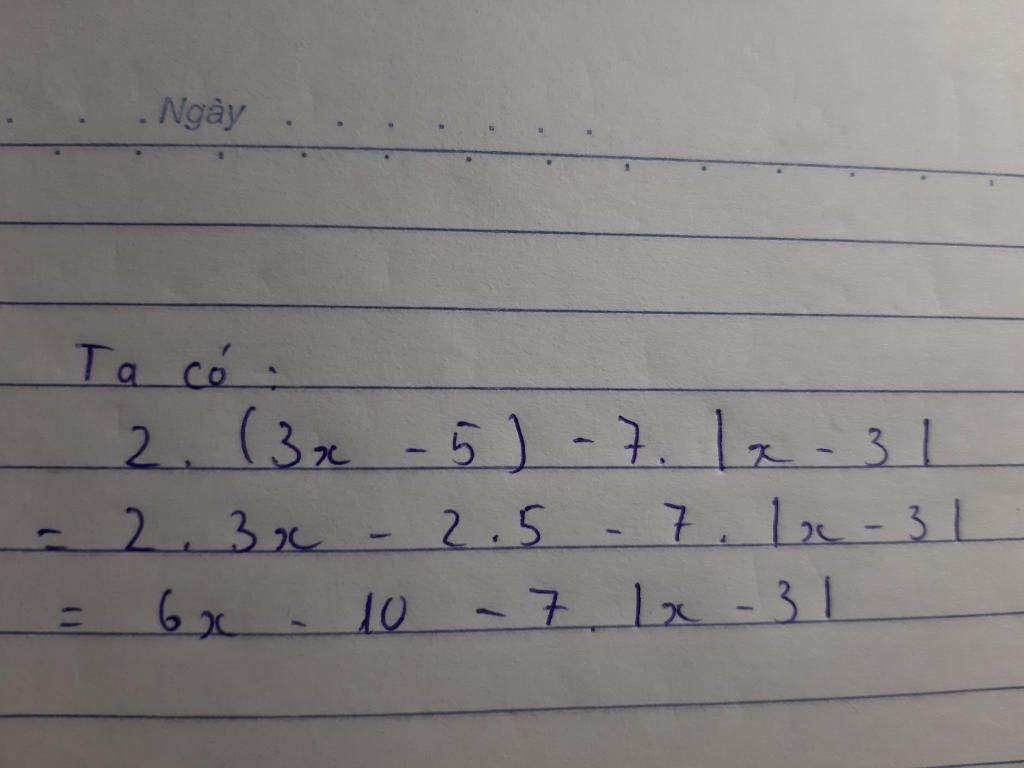 Ngày
Ta có :
2 . (3x - 5) - 7. |x - 3|
= 2 . 3x - 2 . 5 - 7 . |x - 3|
= 6x - 10 - 7 . |x - 3|